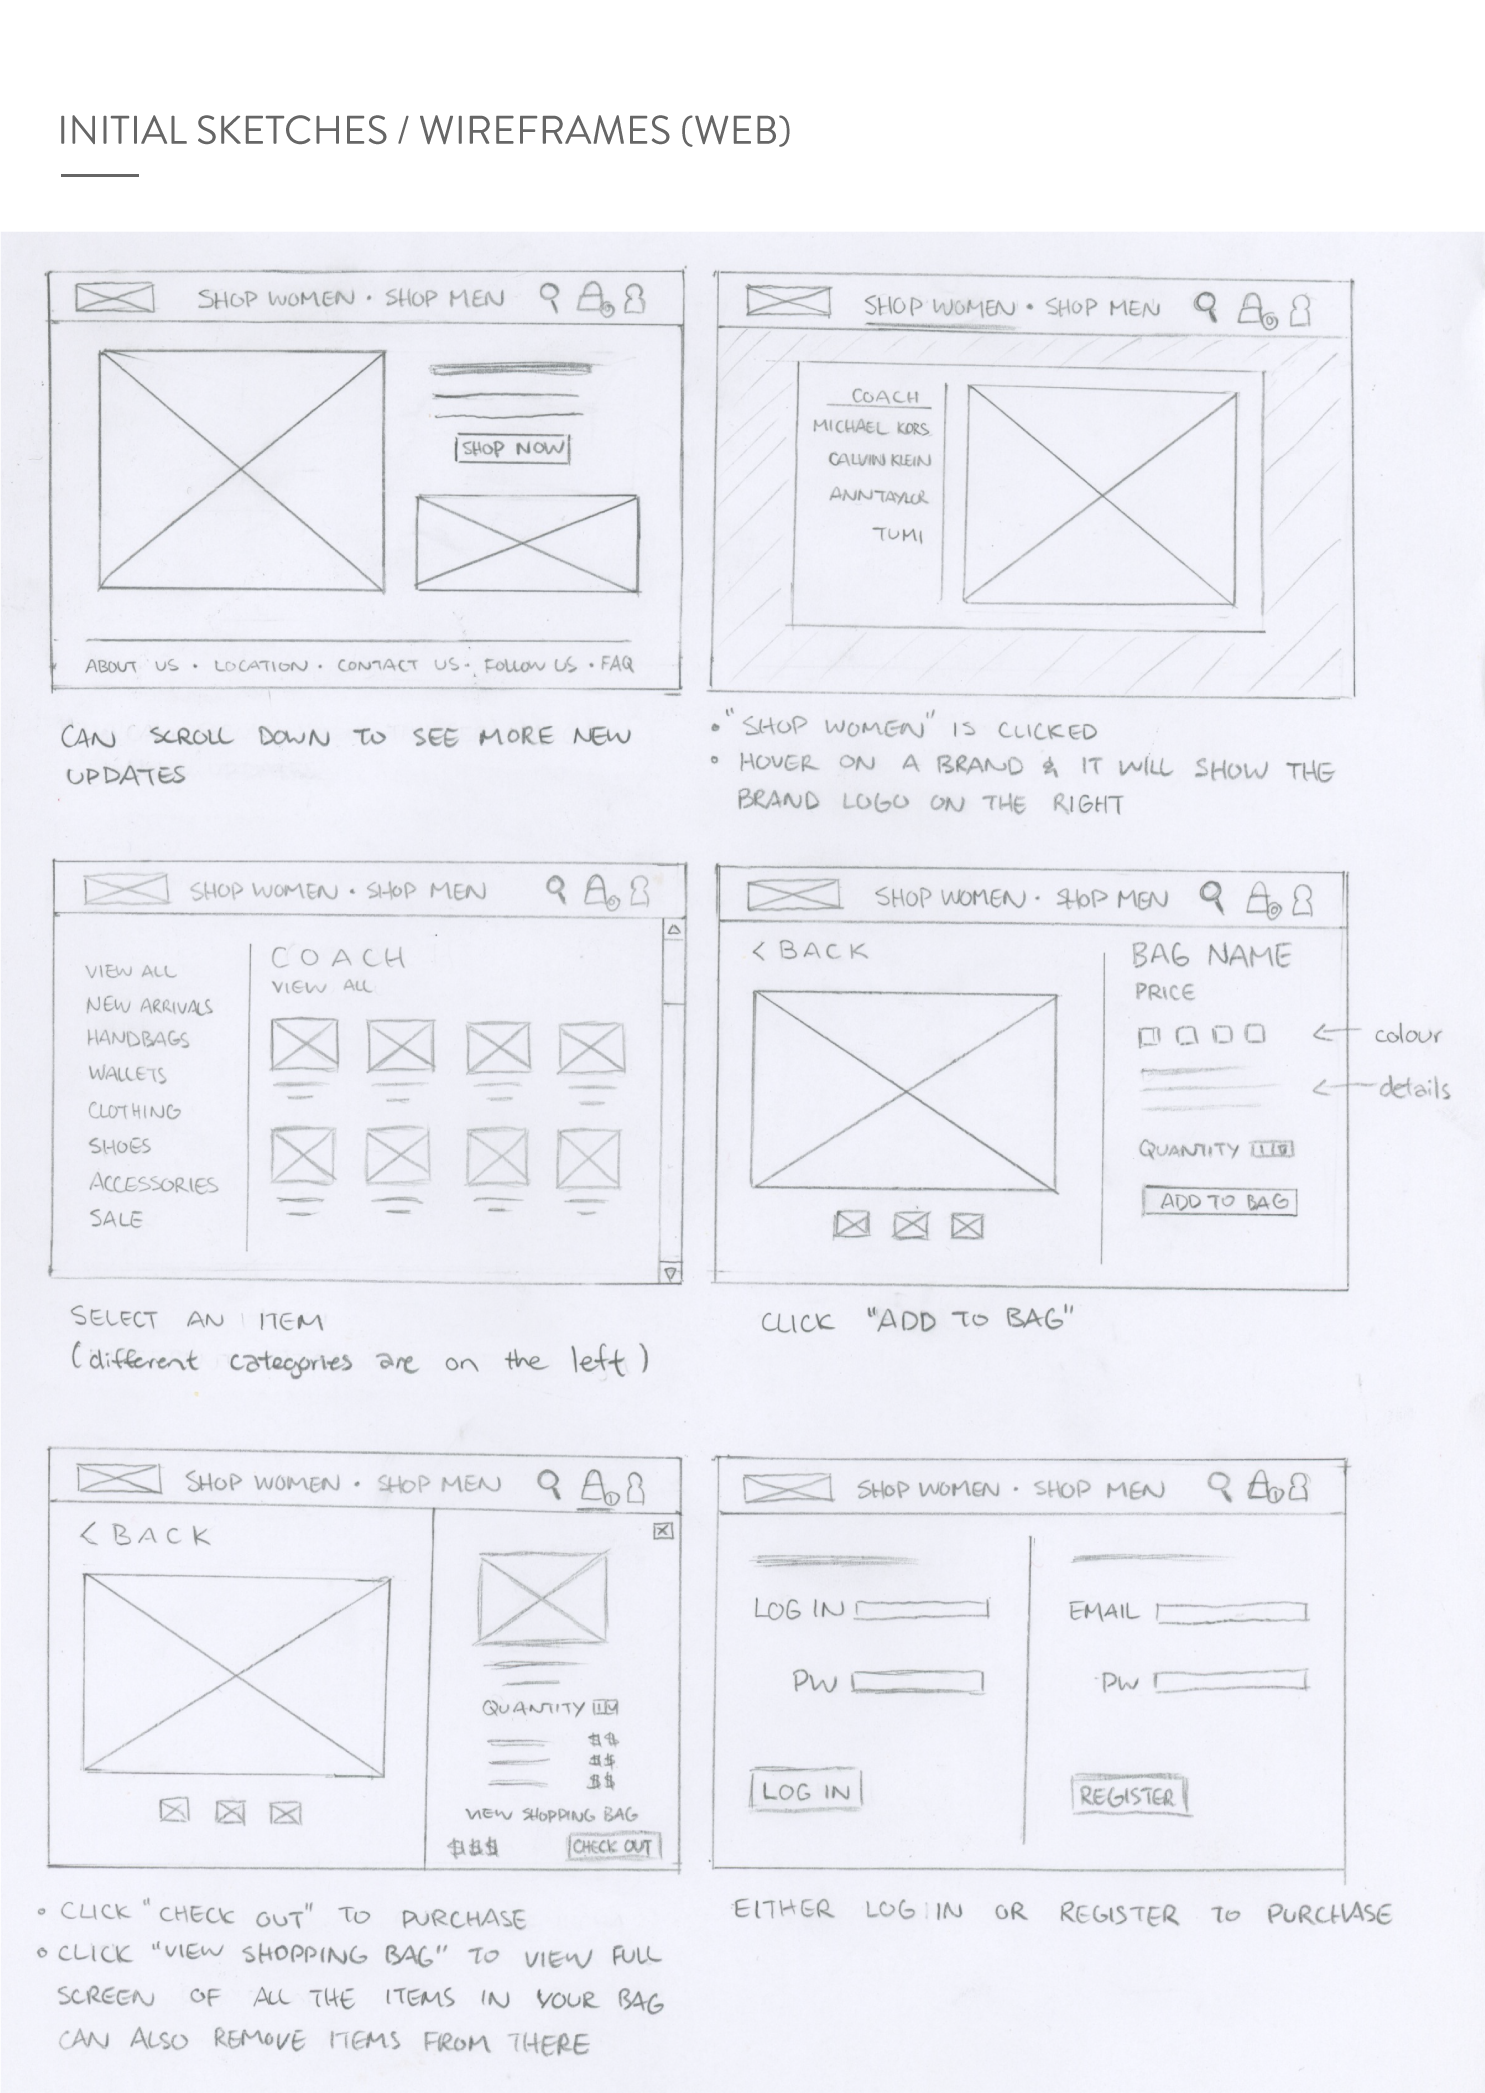 INITIAL SKETCHES / WIREFRAMES (WEB)
SHOP WOMEN · SHOP MEN
SHOP NOW
ABOUT US · LOCATION · CONTACT US · FOLLOW US · FAQ
CAN SCROLL DOWN TO SEE MORE NEW
UPDATES
SHOP WOMEN · SHOP MEN
COACH
MICHAEL KORS
CALVIN KLEIN
ANN TAYLOR
TUMI
• "SHOP WOMEN" IS CLICKED
• HOVER ON A BRAND & IT WILL SHOW THE
BRAND LOGO ON THE RIGHT
SHOP WOMEN · SHOP MEN
VIEW ALL
NEW ARRIVALS
HANDBAGS
WALLETS
CLOTHING
SHOES
ACCESSORIES
SALE
COACH
VIEW ALL
SELECT AN ITEM
(different categories are on the left)
SHOP WOMEN · SHOP MEN
< BACK
BAG NAME
PRICE
colour
details
QUANTITY 1
ADD TO BAG
CLICK "ADD TO BAG"
SHOP WOMEN · SHOP MEN
1
< BACK
X
QUANTITY 1
$$
$$
$$
VIEW SHOPPING BAG
$$$ CHECK OUT
• CLICK "CHECK OUT" TO PURCHASE
• CLICK "VIEW SHOPPING BAG" TO VIEW FULL
SCREEN OF ALL THE ITEMS IN YOUR BAG
CAN ALSO REMOVE ITEMS FROM THERE
SHOP WOMEN · SHOP MEN
1
LOG IN
PW
LOG IN
EMAIL
PW
REGISTER
EITHER LOG IN OR REGISTER TO PURCHASE